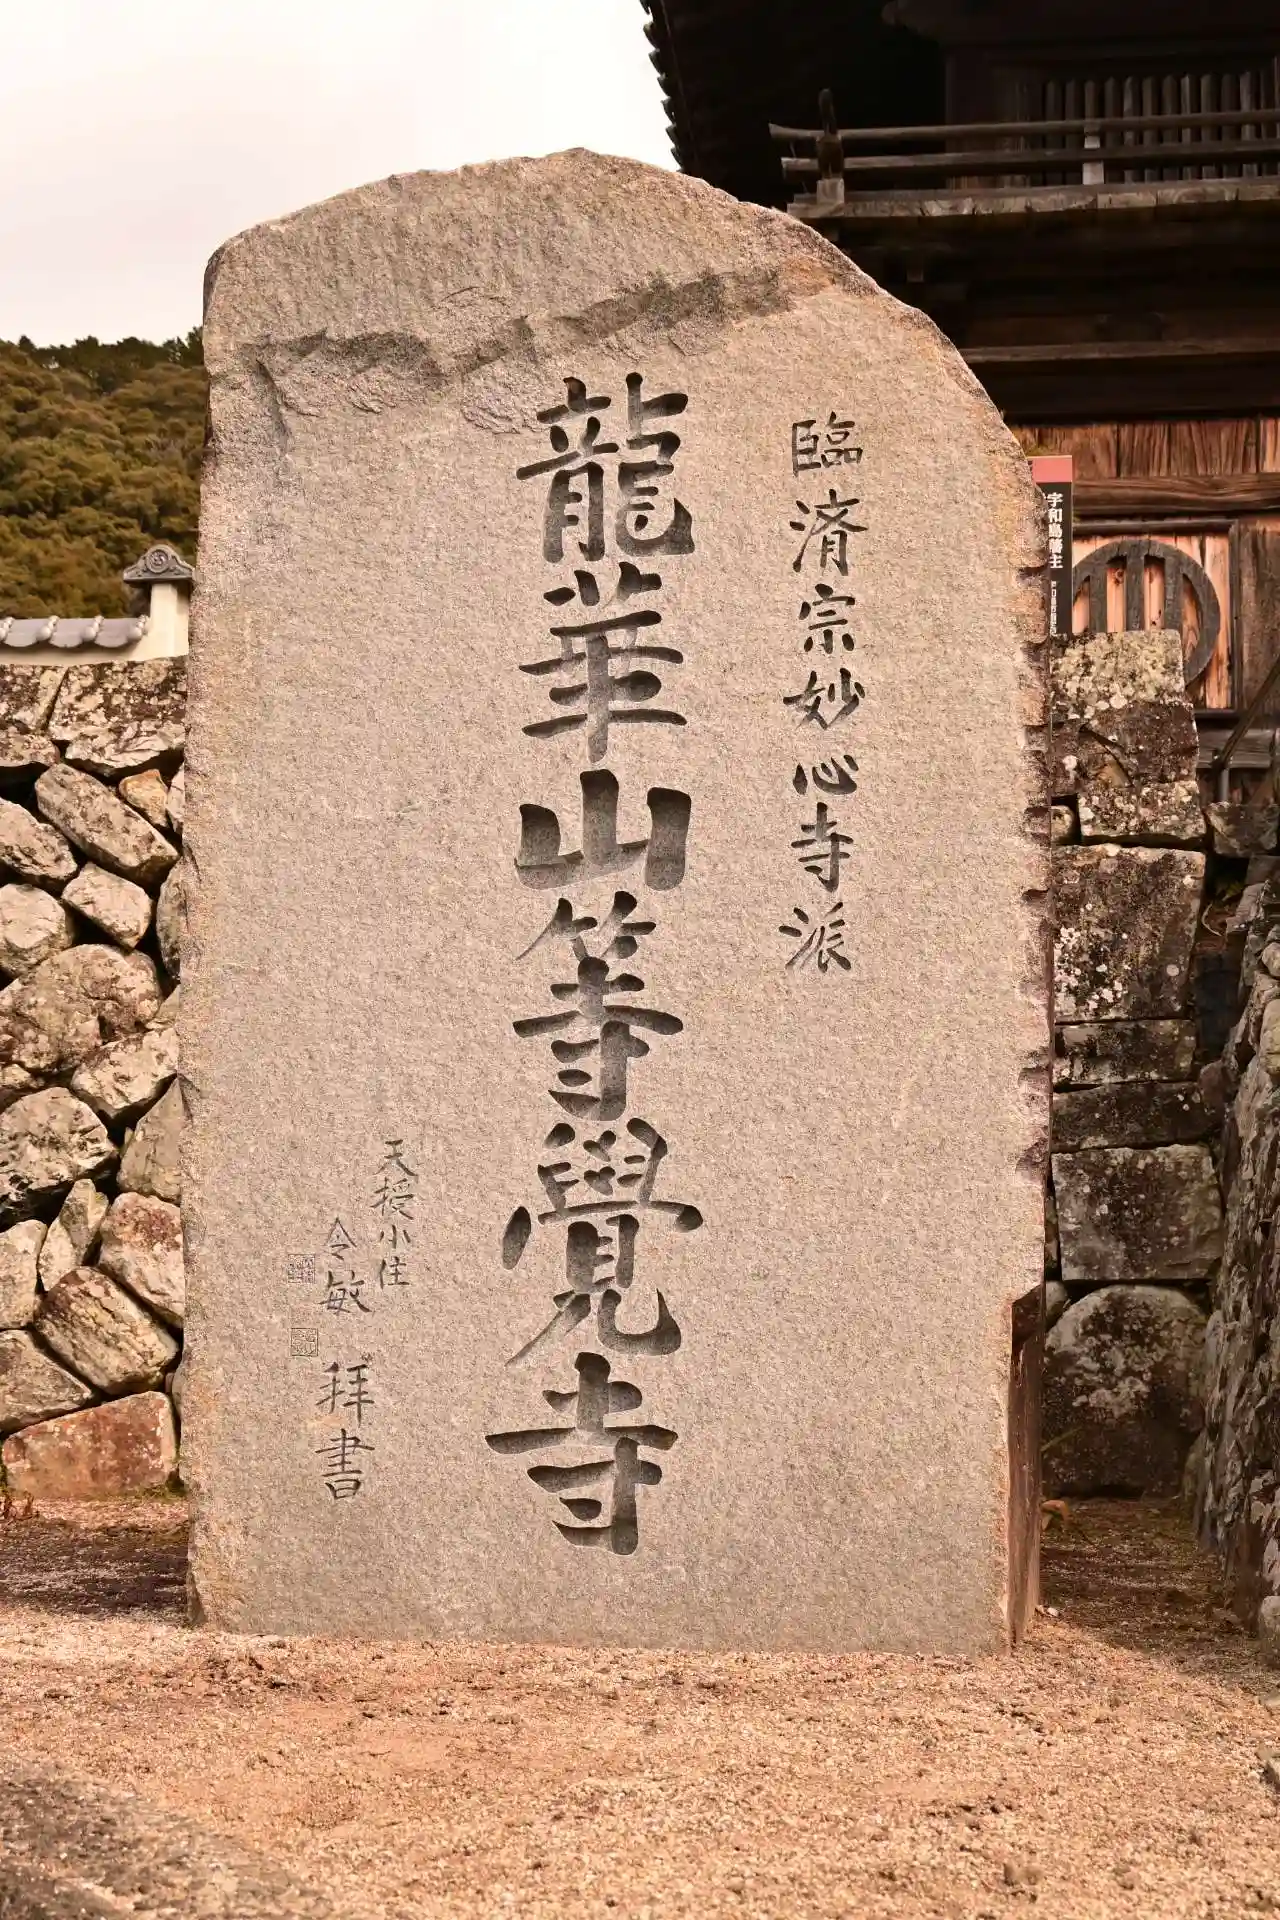 臨済宗妙心寺派
龍華山等覺寺
天授小住
令敏 拝書
宇和島藩主